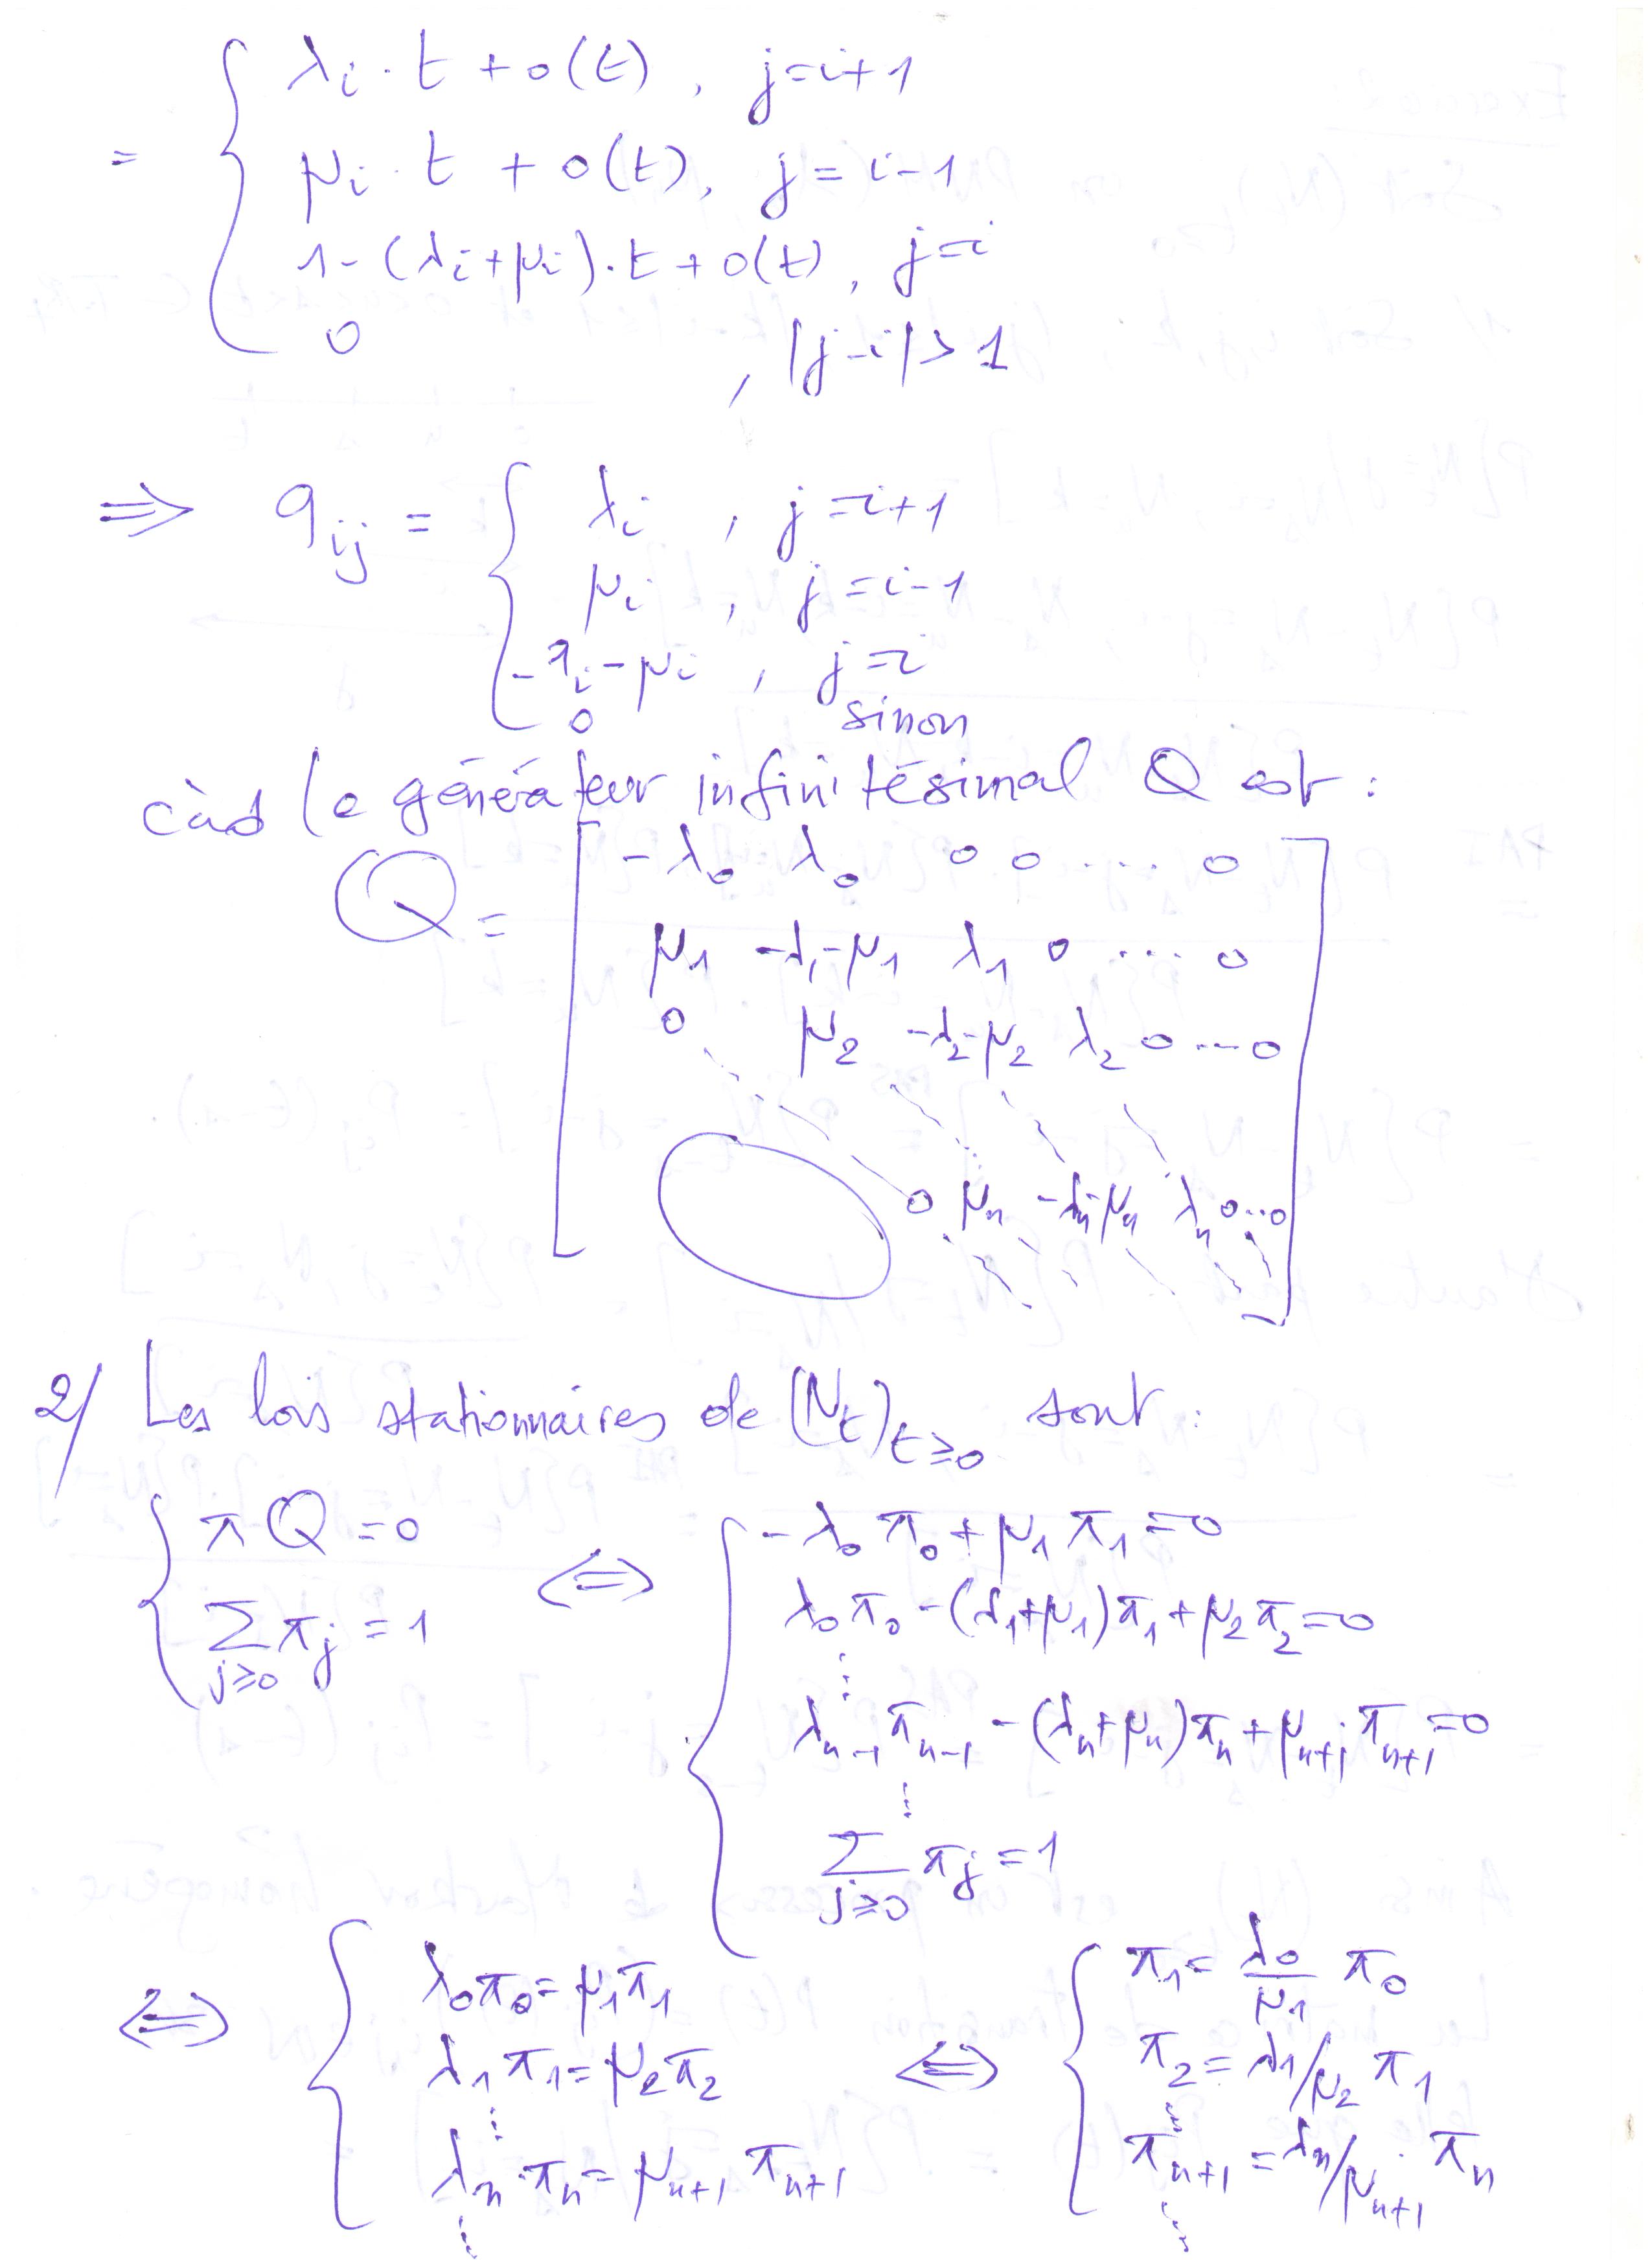 = { λi . t + o(t) , j=i+1
μi . t + o(t), j = i-1
1 - (λi+μi).t + o(t), j=i
0 , |j-i|>1
⇒ qij = { λi , j=i+1
μi , j=i-1
-λi-μi , j=i
0 sinon
càd le générateur infinitésimal Q est :
Q = [ -λ0 λ0 0 0 .... 0
μ1 -λ1-μ1 λ1 0 .... 0
0 μ2 -λ2-μ2 λ2 0 ... 0
0 μn -λn-μn λn 0...0 ]
2/ Les lois stationnaires de (Nt)t≥0 sont :
{ πQ = 0
∑j≥0 πj = 1
⇔ { -λ0 π0 + μ1 π1 = 0
λ0 π0 - (λ1+μ1)π1 + μ2 π2 = 0
⋮
λn-1 πn-1 - (λn+μn)πn + μn+1 πn+1 = 0
⋮
∑j≥0 πj = 1
⇔ { λ0π0 = μ1π1
λ1 π1 = μ2 π2
⋮
λn . πn = μn+1 πn+1
⋮
⇔ { π1 = λ0/μ1 π0
π2 = λ1/μ2 π1
⋮
πn+1 = λn/μn+1 . πn
⋮